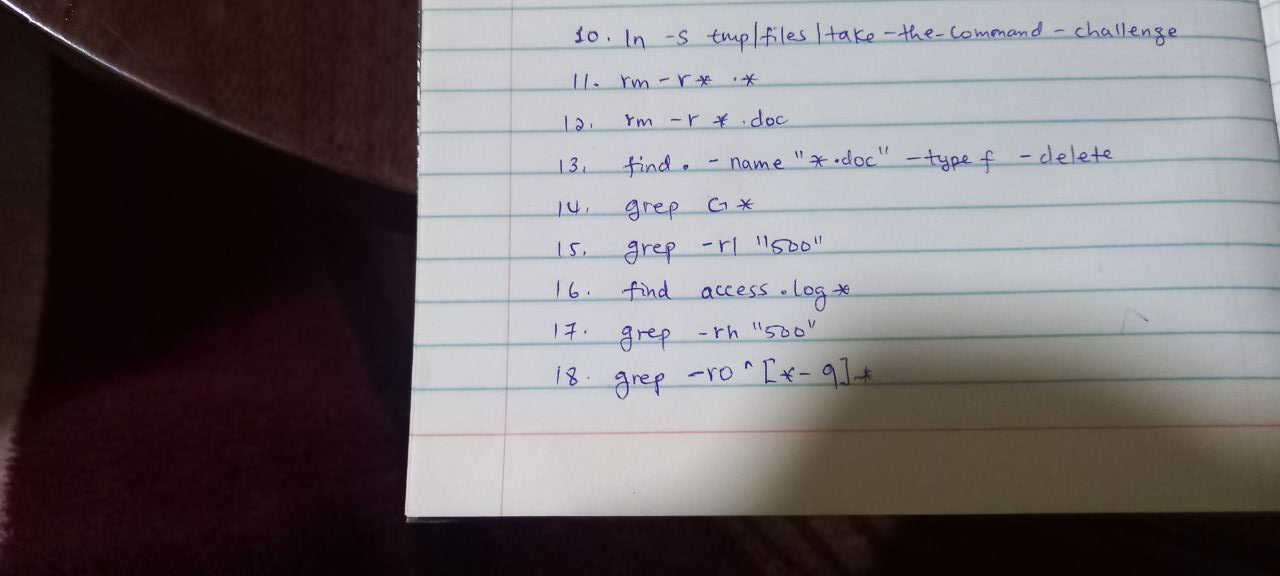 10. ln -s tmp/files/take-the-command-challenge
11. rm -r * .*
12. rm -r *.doc
13. find . -name "*.doc" -type f -delete
14. grep G *
15. grep -rl "500"
16. find access.log*
17. grep -rh "500"
18. grep -ro ^[*-9]*